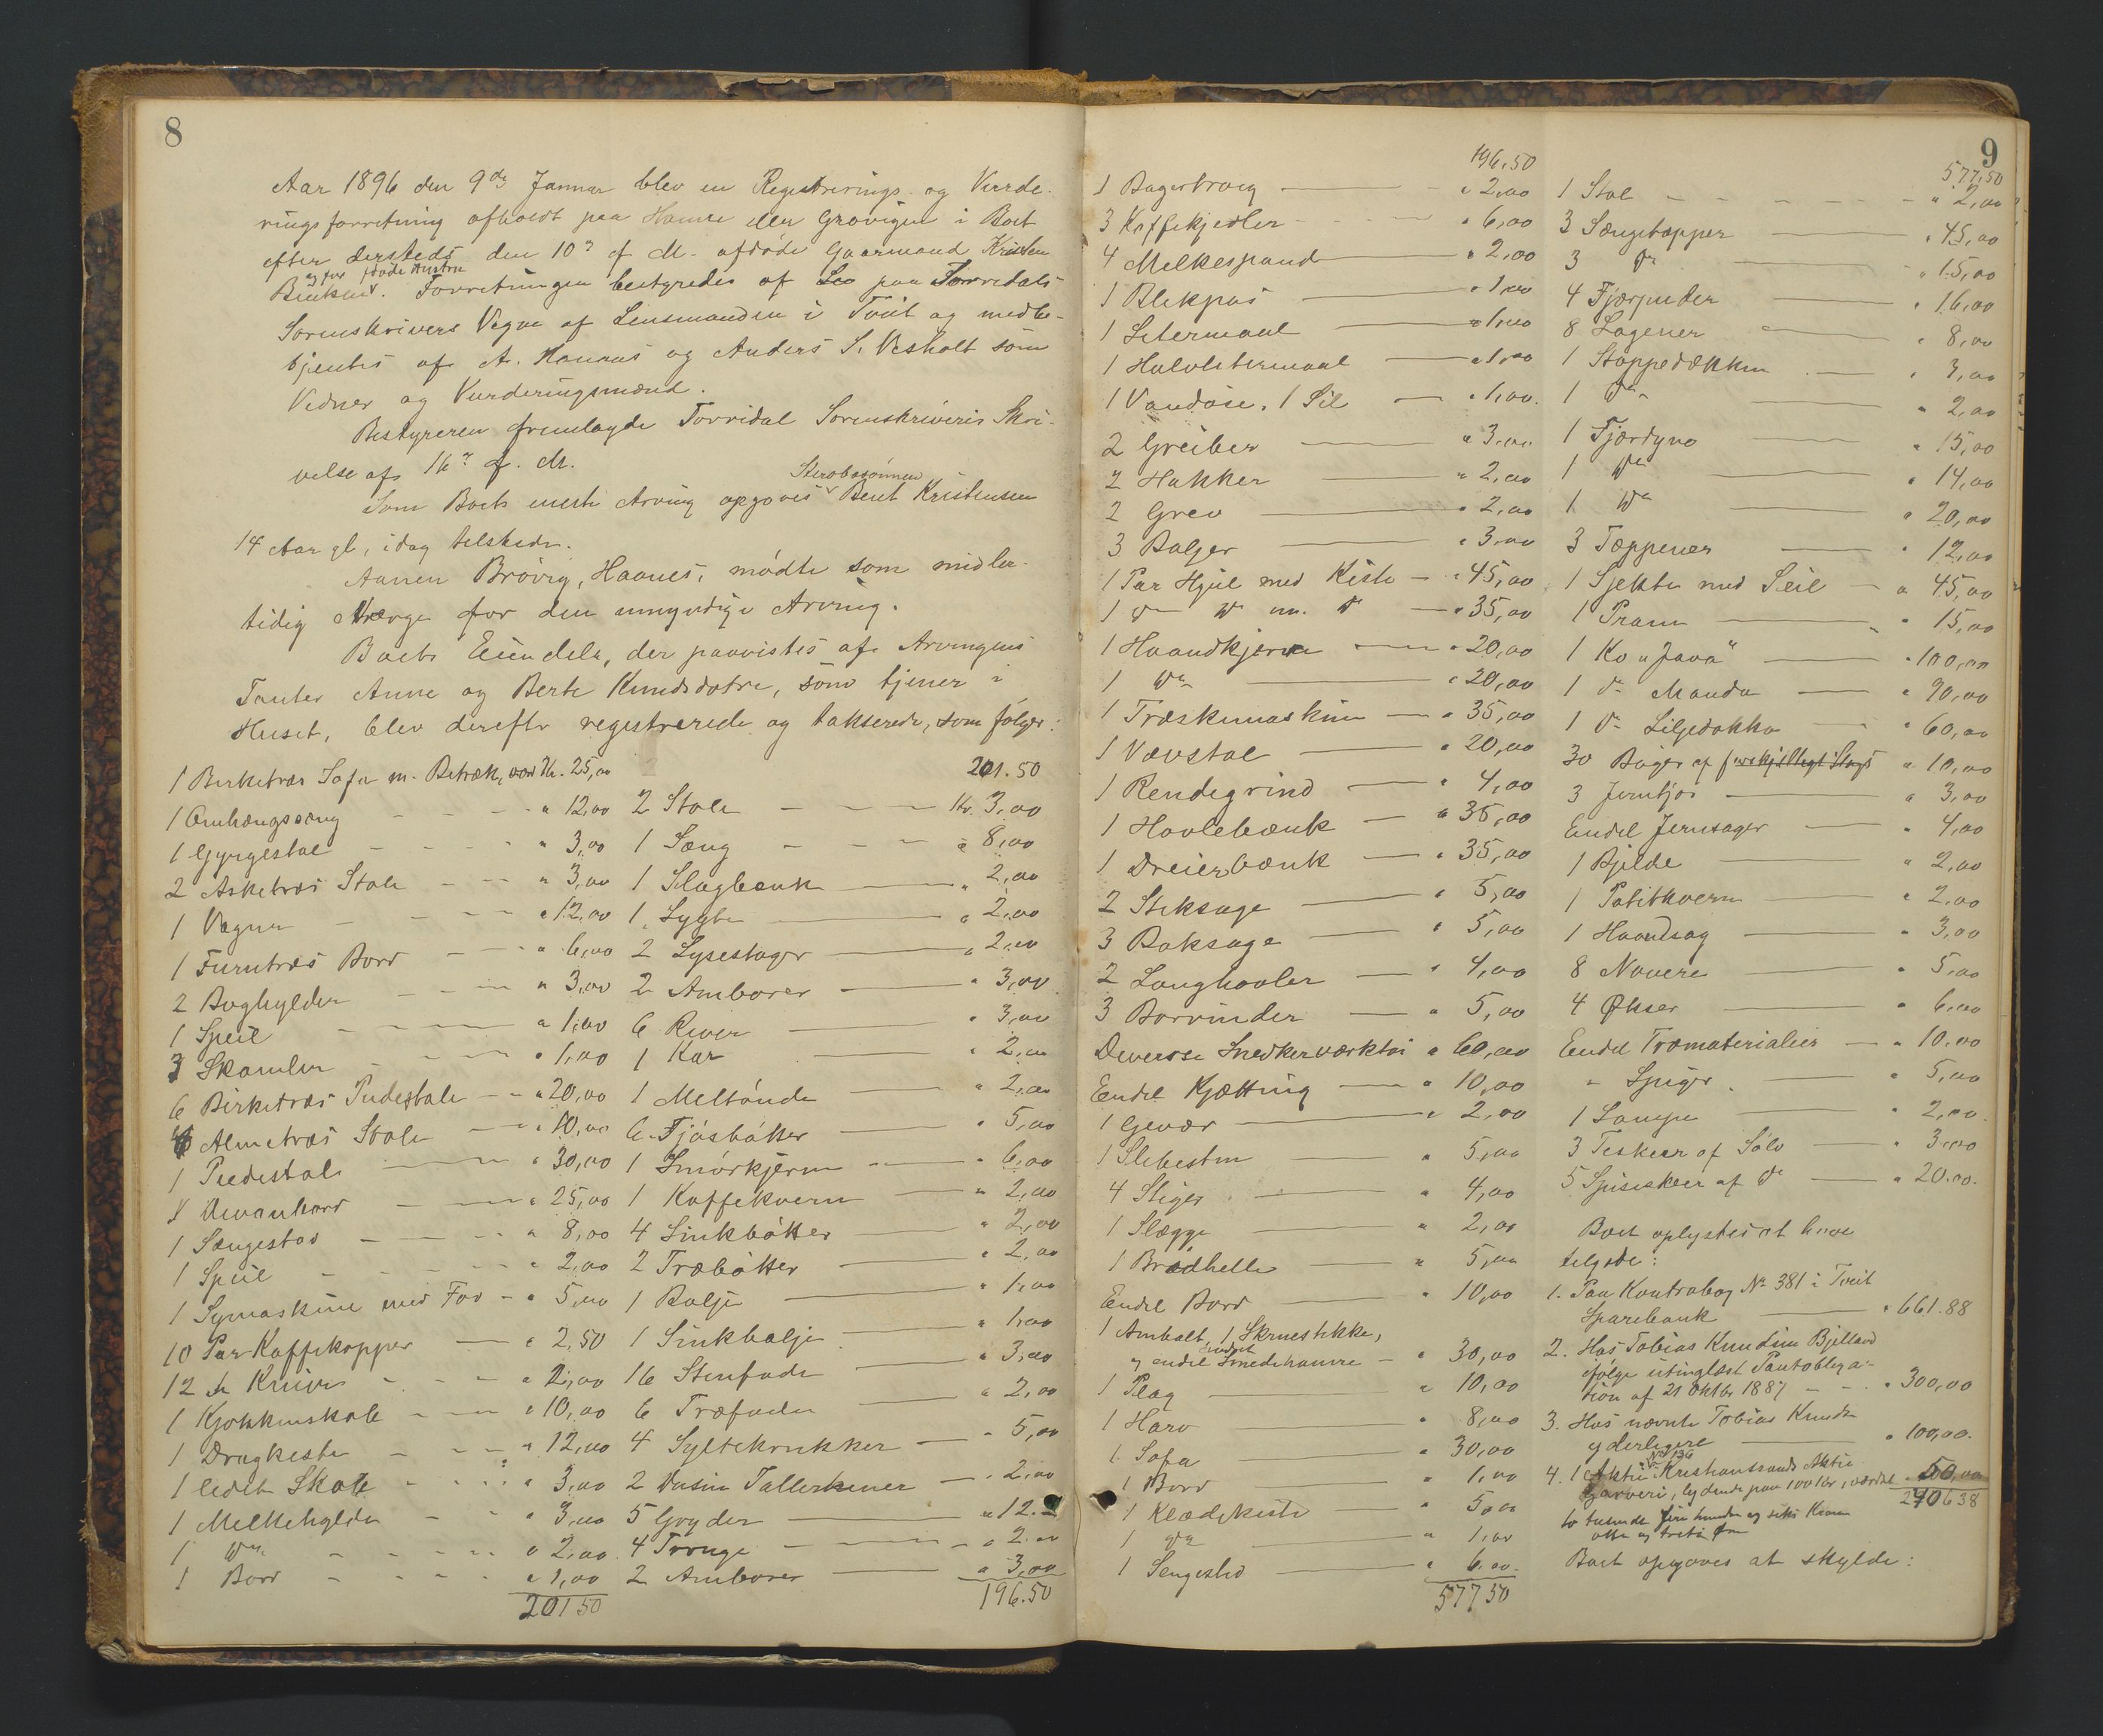 8
Aar 1896 den 9de Januar blev en Registrerings- og Vurde-
ringsforretning afholdt paa Haanes i Boet
efter dersteds den 10de f. M. afdøde Gaarmand Kristen
og før døde Hustru
Forretningen bestyredes af paa Torridals
Sorenskrivers Vegne af Lensmanden i Tveit og medbe-
tjentes af A. Haanæs og Anders S. Vesholt som
Vidner og Vurderingsmænd.
Bestyreren fremlagde Torridal Sorenskriveris Skri-
velse af 16de f. M.
Sterbosønnen
Som Boets eneste Arving opgoves Bent Kristensen
14 Aar gl, idag tilstede.
Aanen Brøvig, Haanes, mødte som midler-
tidig Værge for den umyndige Arving.
Boets Eiendele, der paavistes af Arvingens
Tanter Anne og Berte Knudsdøtre, som tjener i
Huset, blev derefter registrerede og takserede, som følger:
1 Birketræs Sofa m. Betræk, værd Kr. 25,00
1 Omhængsseng - - - " 12,00
1 Gyngestol - - - " 3,00
2 Asketræs Stole - - - " 3,00
1 Vogn - - - " 12,00
1 Furutræs Bord - - " 6,00
2 Boghylder - - - " 3,00
1 Speil - - - " 1,00
3 Skamler - - - " 1,00
6 Birketræs Pudestole - - " 20,00
6 Almetræs Stole - - " 10,00
1 Piedestal - - " 30,00
1 Divanbord - - " 25,00
1 Sengested - - - " 8,00
1 Speil - - - " 2,00
1 Symaskine med Fod - " 5,00
10 Par Kaffekopper - " 2,50
12 Knive - - - " 2,00
1 Kjøkkenskab - - " 10,00
1 Dragkiste - - - " 12,00
1 Skab - - - " 3,00
1 Melkehylde - - " 3,00
1 Do - - - " 2,00
1 Bord - - - " 1,00
201 50
201.50
2 Stole - - - Kr. 3,00
1 Seng - - - " 8,00
1 Slagbænk - " 2,00
1 Lygte - " 2,00
2 Lysestager - " 2,00
2 Ambarer - " 3,00
6 River - " 3,00
1 Kar - " 2,00
1 Meltønde - " 2,00
6 Fjøsbøtter - " 5,00
1 Smørkjerne - " 6,00
1 Kaffekvern - " 2,00
4 Sinkbøtter - " 2,00
2 Træbøtter - " 2,00
1 Balje - " 1,00
1 Sinkbalje - " 1,00
16 Stenfade - " 3,00
6 Træfade - " 2,00
4 Syltekrukker - " 5,00
2 Dusin Tallerkener - " 2,00
5 Gryder - " 12.-
4 Trouge - - " 2.00
2 Ambarer - " 3,00
196.50
196.50
1 Bagertroug - " 2,00
3 Kaffekjedler - - " 6,00
4 Melkespand - " 2,00
1 Blekpøs - " 1,00
1 Litermaal - " 1,00
1 Halvlitermaal - " 1,00
1 Vandøse, 1 Sil - " 1,00.
2 Greiber - " 3,00
2 Hakker - " 2,00
2 Grev - " 2,00
3 Baljer - " 3,00
1 Par Hjul med Kiste - " 45,00
1 do Do m. do - " 35,00
1 Haandkjerre - " 20,00
1 Do - " 20,00
1 Træskemaskine - " 35,00
1 Vævstol - " 20,00
1 Rendegrind - " 4,00
1 Høvlebænk - " 35,00
1 Dreierbænk - " 35,00
2 Stiksage - " 5,00
3 Baksage - " 5,00
2 Langhøvler - " 4,00
3 Borvinder - " 5,00
Diverse Snedkerværktøi " 60,00
Endel Kjætting - " 10,00
1 Gevær - " 2,00
1 Slibesten - " 5,00
4 Stiger - " 4,00
1 Slægge - " 2,00
1 Brødhelle - " 5,00
Endel Bord - " 10,00
1 Ambolt, 1 Skruestikke,
og endel Smedehamre - " 30,00
1 Plog - " 10,00
1 Harv - " 8,00
1 Sofa - " 30,00
1 Bord - " 1,00
1 Klædekiste - " 5,00
1 Do - " 1,00
1 Sengested - " 6,00.
577 50
9
577,50
1 Stol - - - " 2,00
3 Sengetæpper - " 45,00
3 do - " 15,00
4 Fjærpuder - " 16,00
8 Lagener - " 8,00
1 Stoppedækken - " 3,00
1 do - " 2,00
1 Fjærdyne - " 15,00
1 Do - " 14,00
1 Do - " 20,00
3 Tæppener - " 12,00
1 Sjekte med Seil - " 45,00
1 Pram - " 15,00
1 Ko "Fava" - " 100,00
1 do Manda - " 90,00
1 do Liljedokka - " 60,00
30 Bøger af forskjelligt Slags " 10,00
3 Jernfjøs - " 3,00
Endel Jernsager - " 4,00
1 Bjelde - " 2,00
1 Potitkvern - " 2,00
1 Haandsag - " 3,00
8 Navere - " 5,00
4 Økser - " 6,00
Endel Træmaterialier - " 10,00
" Spiger - " 5,00
1 Lampe - " 2,00.
3 Teskeer af Sølv - " 3,00
5 Spiseskeer af do - " 20.00.
Boet oplystes at have
tilgode:
1. Paa Kontrabog No 381 i Tveit
Sparebank - " 661.88
2. Hos Tobias Knudsen Bjelland
ifølge utinglæst Pantobliga-
tion af 21 Oktbr 1887 - - " 300,00
3. Hos nævnte Tobias Knudsen
yderligere - " 100,00.
4. 1 Aktie i Kristianssands Aktie
garveri, lydende paa 100 Kr, værdsat " 50,00
2406 38
to tusinde fire hundre og seks Kroner
otte og treti Øre
Boet opgoves at skylde: